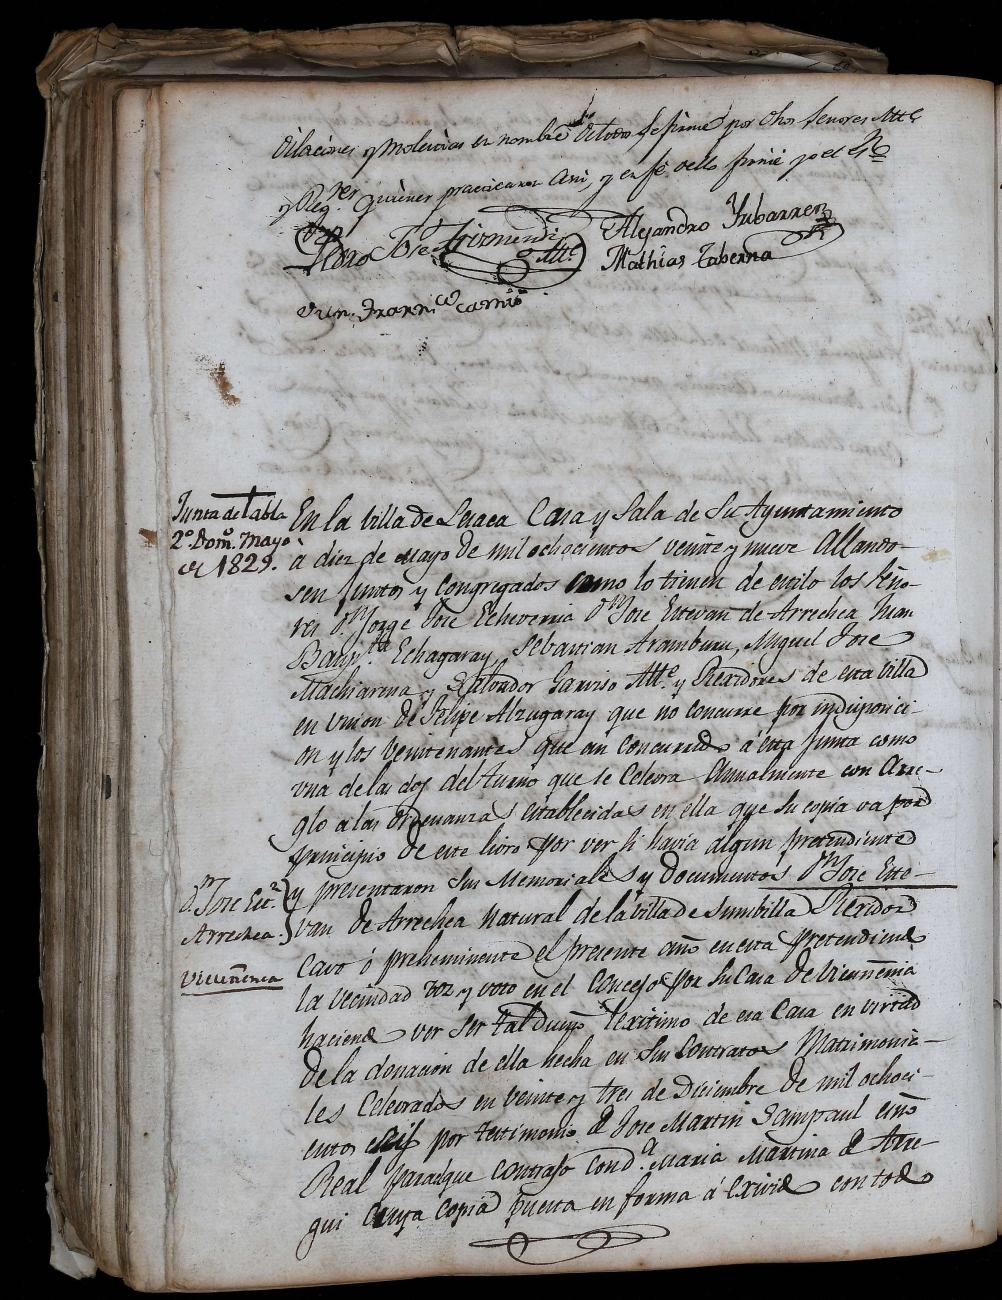 dilaciones y molestias en nombre de todos se firmó por dhos Señores Alc.e
y Reg.res quienes practicaron asi, y en fé de ello firmé yo el
Pedro Jose Irismendi Alc.e
Alejandro Yubarren
Mathias Taberna
Junta de Tabla
2.º Dom.º Mayo
de 1829.
En la Villa de Lesaca Casa y Sala de Su Ayuntamiento
à diez de mayo de mil ochocientos veinte y nueve allando-
sen juntos y congregados como lo tienen de estilo los Seño-
res D.n Jorge José Echeverria D.n Jose Estevan de Arrechea Juan
Baup.ta Echagaray, Sebastian Aramburu, Miguel Jose
Machiarena y Salvador Garviso Alc.e y Rexidores de esta Villa
en union de Felipe Alzugaray que no concurre por indisposici-
on y los veintenantes que an concurrido á esta Junta como
una de las dos del turno que se celevra Annualmente con Arre-
glo a las ordenanzas establecidas en ella que su copia va por
principio de este libro por ver si havia algun pretendiente
D.n Jose Est.n
Arrechea.
Vicuñenea
y presentaron sus Memoriales y documentos D.n Jose Este-
van de Arrechea natural de la villa de Sumbilla Rexidor
Cavo ó preheminente el presente año en esta pretendiendo
la vecindad voz y voto en el Concejo por su Casa de Vicuñenia
haciendo ver ser tal dueño lexitimo de esa Casa en virtud
de la donacion de ella hecha en sus Contratos Matrimonia-
les Celevrados en veinte y tres de Diciembre de mil ochoci-
entos seis por testimonio de Jose Martin Sampaul esno
Real para que contrajo con D.a Maria Martina de Arre-
gui Cuya copia puesta en forma á exivido con todo